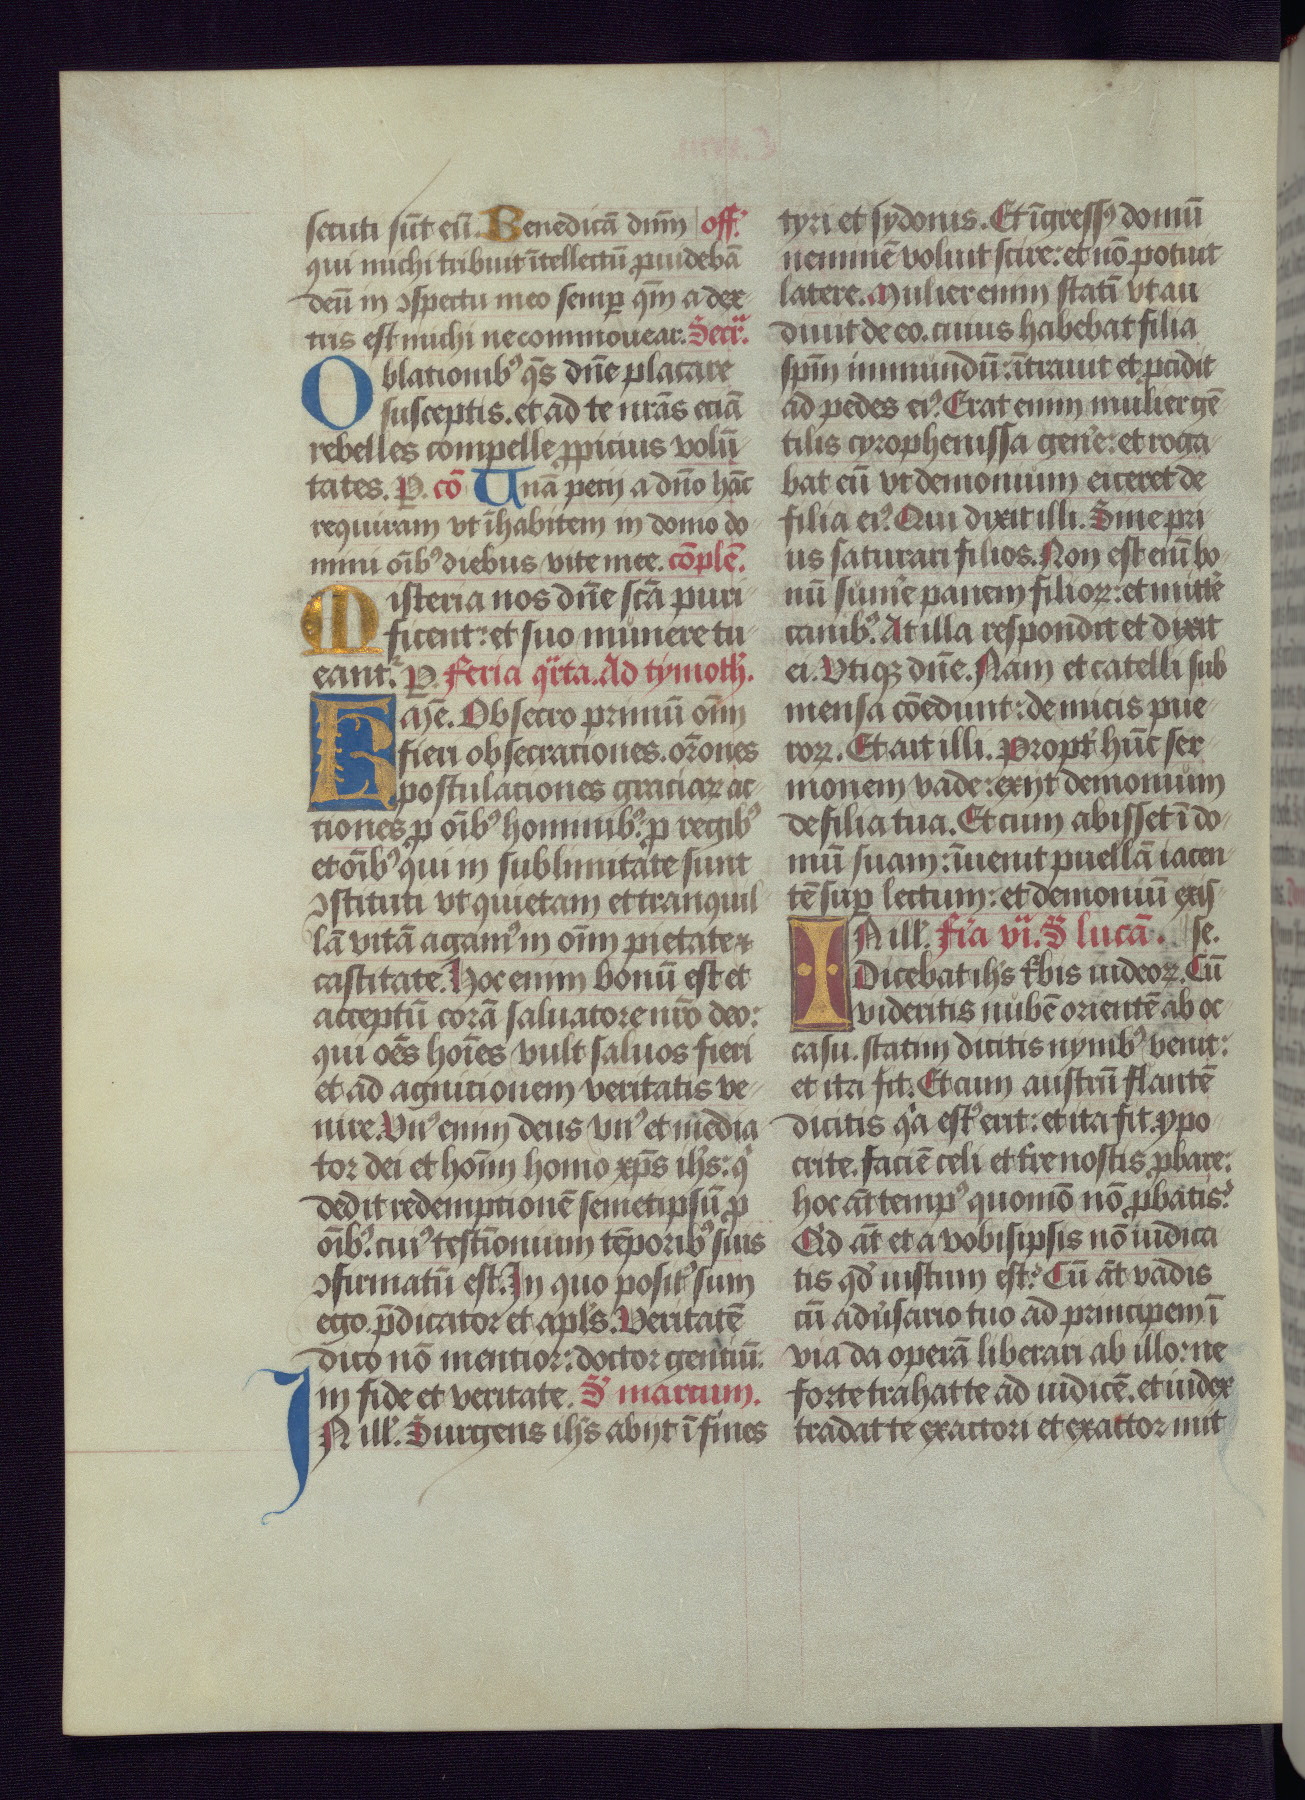 secuti sūt eū. Benedicā dnm̄ off̄.
qui michi tribuit ītellectū ꝓuidebā
deū in ↄspectu meo semꝑ qm̄ a dex
tris est michi ne commouear. Secr̄.
Oblationibꝰ qs̄ dn̄e placare
susceptis. et ad te nr̄as eciā
rebelles compelle ꝓpicius volū
tates. P. cō Unā petij a dn̄o hāc
requiram vt īhabitem in domo do
mini oībꝰ diebus vite mee. cōplē.
Misteria nos dn̄e scā puri
ficent: et suo munere tu
eantr̄. P. Feria qr̄ta. Ad tymoth̄.
Kaj̄e. Obsecro primū oīm
fieri obsecrationes. or̄ones
postulationes graciaꝝ ac
tiones. ꝓ oībꝰ hominibꝰ. ꝓ regibꝰ
et oībꝰ qui in sublimitate sunt
ↄstituti vt quietam et tranquil
lā vitā agamꝰ in oīm pietate ⁊
castitate. Hoc enim bonū est et
acceptū corā saluatore nr̄o deo:
qui oēs hoīes vult saluos fieri
et ad agnitionem veritatis ve
nire. Vnꝰ enim deus vnꝰ et media
tor dei et hoīm homo xp̄s ih̄s: qͥ
dedit redemptionē semetipsū ꝓ
oībꝰ. cuiꝰ testīonium tēporibꝰ suis
ↄfirmatū est. In quo positꝰ sum
ego. p̄dicator et apl̄s. Veritatē
dico nō mentior: doctor gentiū.
in fide et veritate. S marcum.
IN ill̄. Surgens ih̄s abijt ī fines
tyri et sydonis. Et īgressꝰ domū
neminē voluit scire: et nō potuit
latere. Mulier enim statī vt au
diuit de eo. cuius habebat filia
spm̄ inmundū: ītrauit et ꝓcidit
ad pedes eiꝰ. Erat enim mulier gē
tilis cyrophenissa gen̄e: et roga
bat eū vt demonium eiceret de
filia eiꝰ. Qui dixit illi. Sine pri
us saturari filios. Non est enī bo
nū sum̄e panem filioꝝ: et mitt̄e
canibꝰ. At illa respondit et dixit
ei. Vtiqꝫ dn̄e. Nam et catelli sub
mensa cōedunt: de micis pue
roꝝ. Et ait illi. Propt̄ hūc ser
monem vade: exijt demonium
de filia tua. Et cum abisset ī do
mū suam: īuenit puellā iacen
tē suꝑ lectum: et demoniū exis
IN ill̄. Fr̄ia vi. S lucā. se.
Dicebat ih̄s t̄bis iudeoꝝ. Cū
videritis nubē orientē ab oc
casu. statim dicitis nymbꝰ venit:
et ita fit. Et cum austrū flantē
dicitis qͥa estꝰ erit: et ita fit. ypo
crite. faciē celi et tr̄e nostis ꝓbare:
hoc āt tempꝰ quomō nō ꝓbatis?
Qͥd āt et a vobis ipsis nō iudica
tis qd̄ iustum est? Cū āt vadis
cū adūsario tuo ad principem ī
via da operā liberari ab illo: ne
forte trahat te ad iudicē. et iudex
tradat te exactori et exactor mit